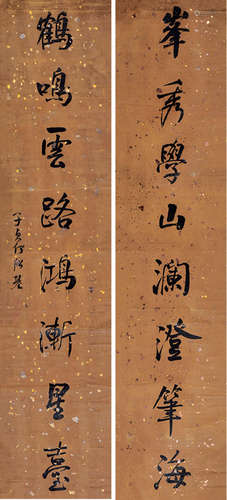 峯秀學山瀾澄筆海
鶴鳴雲路鴻漸星臺
子貞何紹基